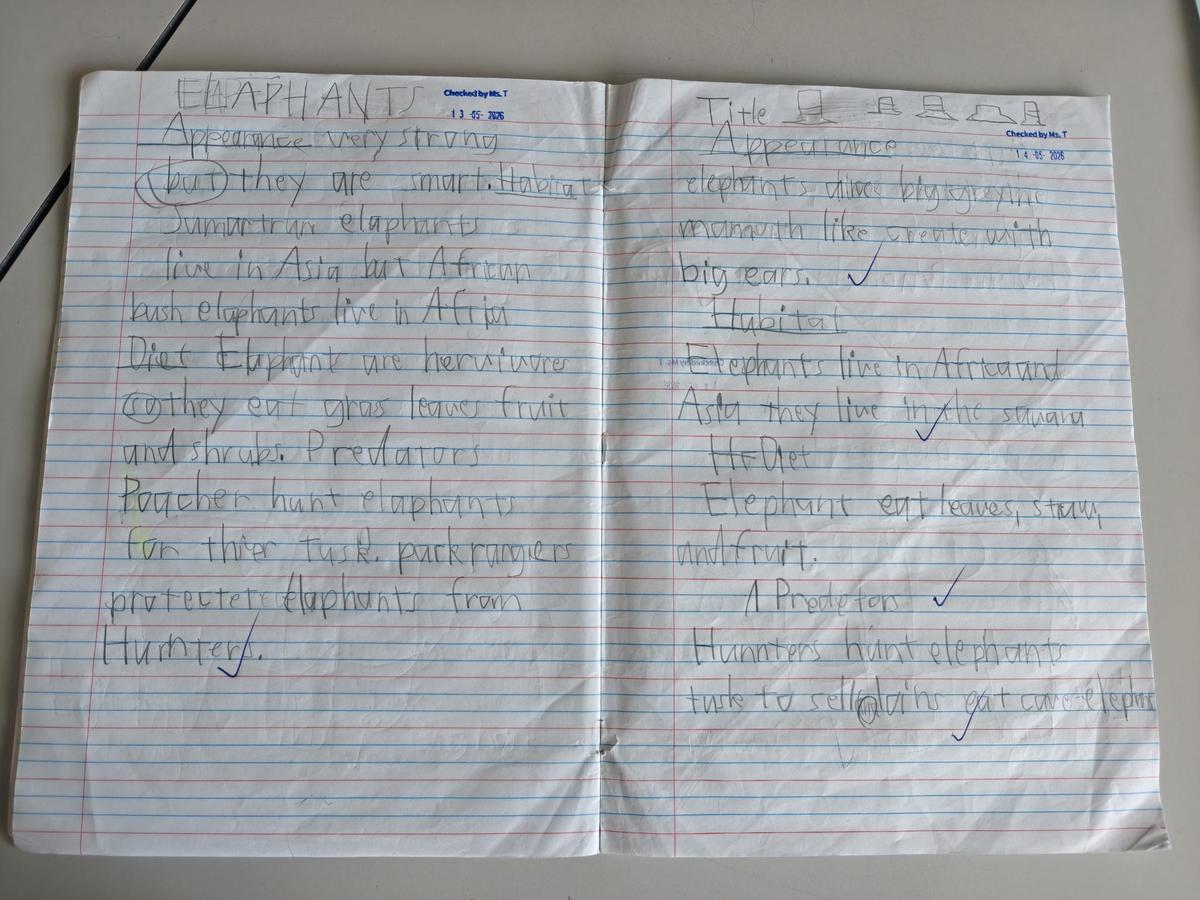 ELAPHANTS
Checked by Ms. T
13 -05- 2026
Appearance very strong
but they are smart. Habitat
Sumartran elaphants
live in Asia but African
bush elaphants live in Afria
Diet Elaphant are hervivores
so they eat gras leaves fruit
and shrubs. Predators
Poacher hunt elaphants
for thier tusk. park rangiers
protectet elaphants from
Hunters.
Title
Checked by Ms. T
14 -05- 2026
Appearance
elephants big greyinc
mamuth like create with
big ears.
Habitat
Elephants live in Africa and
Asia they live in the savana
Diet
Elephant eat leaves,
and fruit.
Predetors
Hunnters hunt elephants
tusk to sell loins eat cave elephns